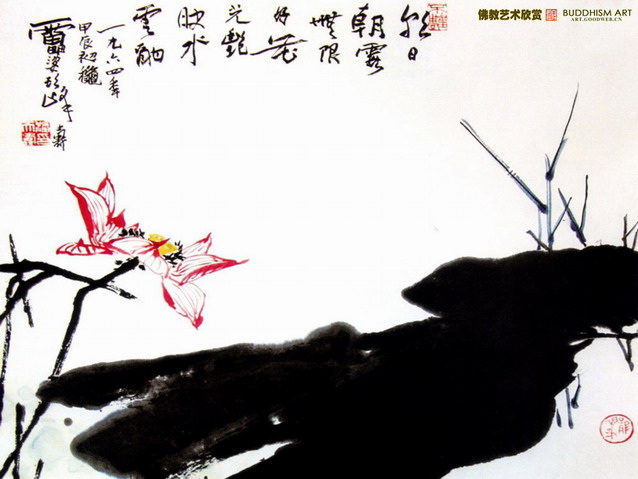 佛教艺术欣赏
BUDDHISM ART
ART.GOODWEB.CN
日
朝霞
無限
好花
光艷
映水
雲酣
一九六四年
甲辰初穐
雷婆頭峰
壽